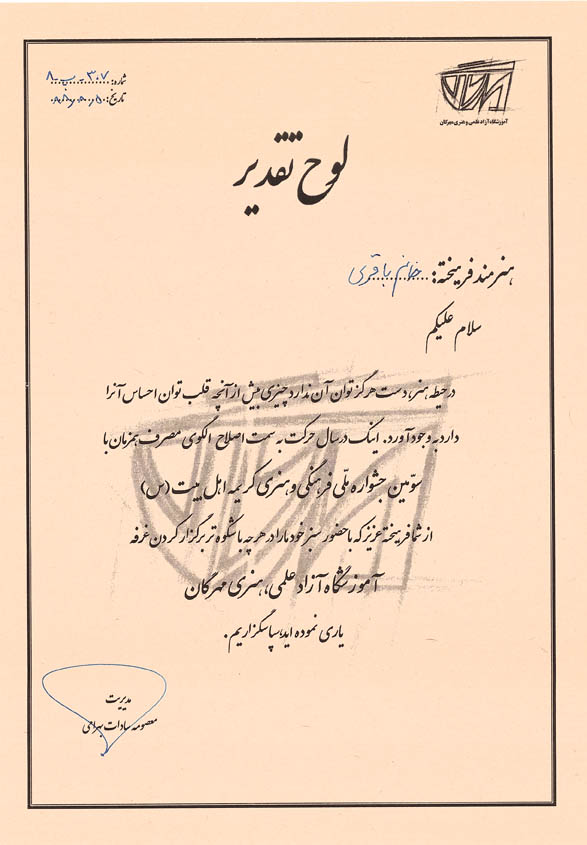 آموزشگاه آزاد علمی و هنری مهرگان
شماره:
تاریخ:
لوح تقدیر
هنرمند فریخته: خانم باقری
سلام علیکم
در حیطه هنر، دست هرگز توان آن ندارد چیزی بیش از آنچه قلب توان احساس آنرا
دارد به وجود آورد. اینک در سال حرکت به سمت اصلاح الگوی مصرف همزمان با
سوّمین جشنواره ملّی فرهنگی و هنری کریمه اهل بیت (س)
از شما فریخته عزیز که با حضور سبز خود ما را در هر چه با شکوه تر برگزار کردن غرفه
آموزشگاه آزاد علمی، هنری مهرگان
یاری نموده اید، سپاسگزاریم.
مدیریت
معصومه سادات بهرامی